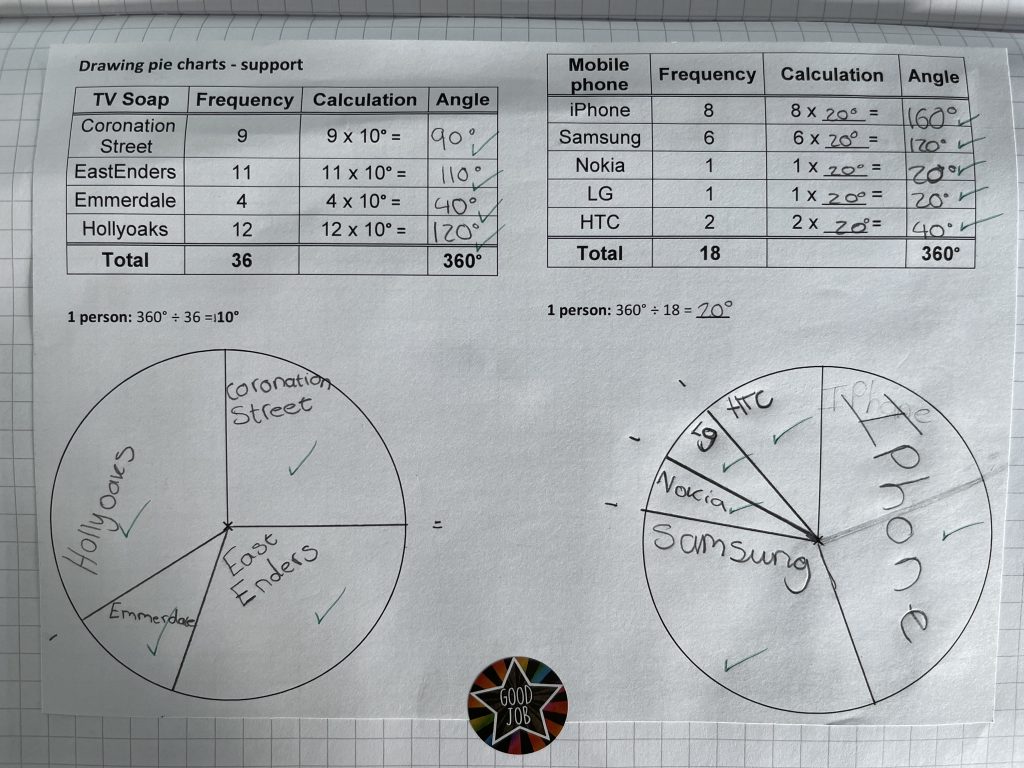 Drawing pie charts - support
TV Soap Frequency Calculation Angle
Coronation Street 9 9 x 10° = 90°
EastEnders 11 11 x 10° = 110°
Emmerdale 4 4 x 10° = 40°
Hollyoaks 12 12 x 10° = 120°
Total 36 360°
1 person: 360° ÷ 36 = 10°
Coronation
Street
Hollyoaks
East
Enders
Emmerdale
=
Mobile phone Frequency Calculation Angle
iPhone 8 8 x 20° = 160°
Samsung 6 6 x 20° = 120°
Nokia 1 1 x 20° = 20°
LG 1 1 x 20° = 20°
HTC 2 2 x 20° = 40°
Total 18 360°
1 person: 360° ÷ 18 = 20°
HTC
IPhone
IPhone
lg
Nokia
Samsung
GOOD
JOB